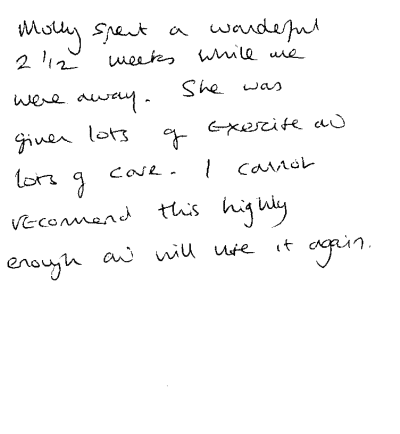 Molly spent a wonderful
2 1/2 weeks while we
were away. She was
given lots of exercise and
lots of care. I cannot
recommend this highly
enough and will use it again.